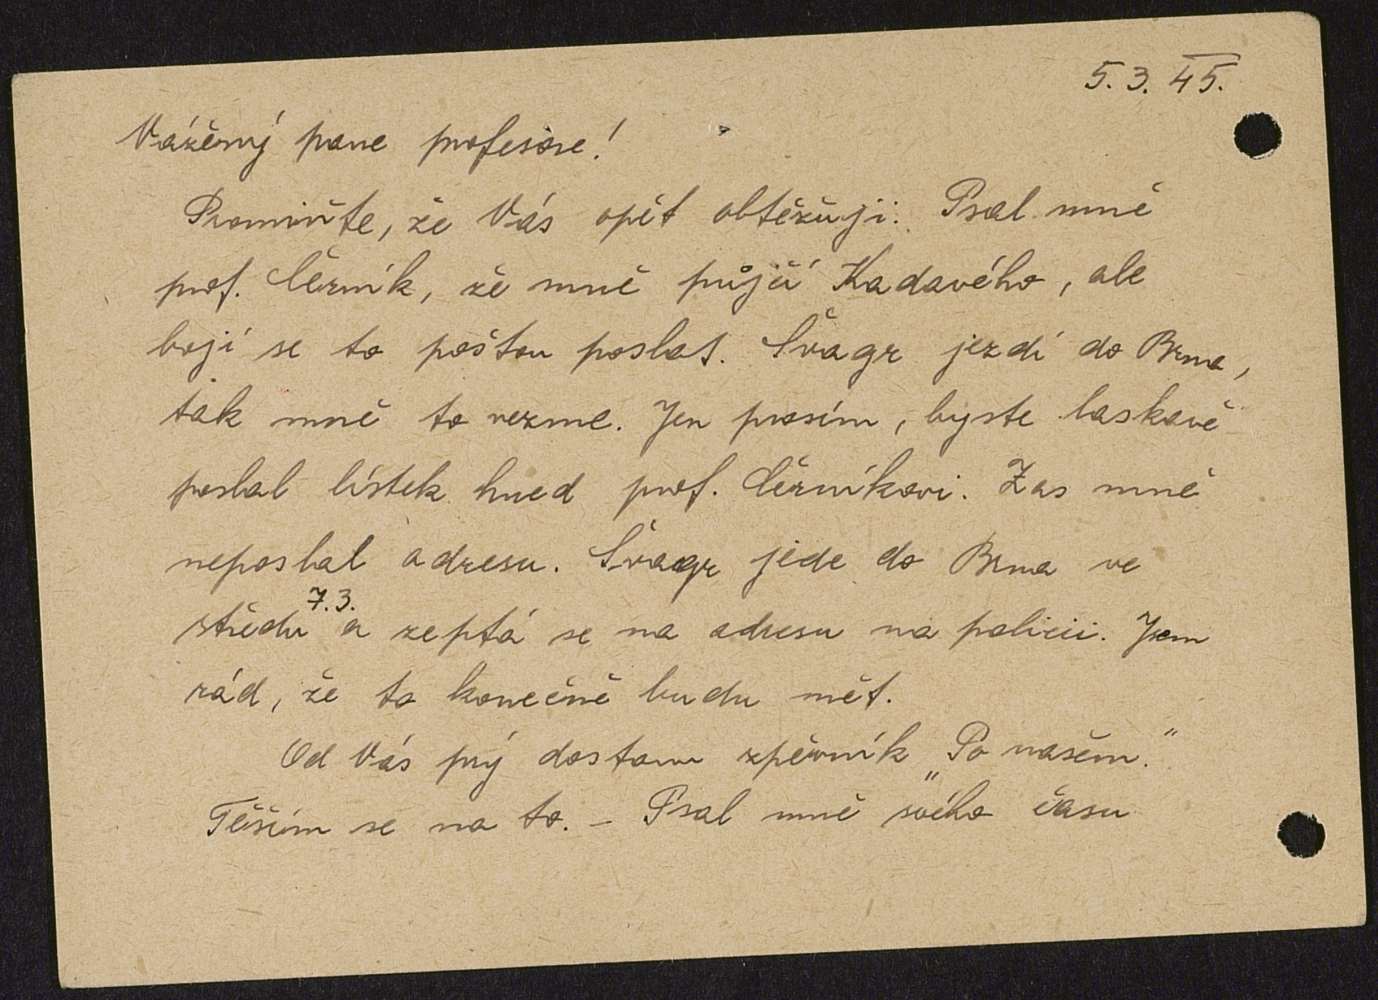 5. 3. 45.
Vážený pane profesore!
Promiňte, že Vás opět obtěžuji. Psal mně
prof. Černík, že mně půjčí Kadavého, ale
bojí se to poštou poslat. Švagr jezdí do Brna,
tak mně to vezme. Jen prosím, byste laskavě
poslal lístek hned prof. Černíkovi. Zas mně
neposlal adresu. Švagr jede do Brna ve
středu 7. 3. a zeptá se na adresu na policii. Jsem
rád, že to konečně budu mět.
Od Vás prý dostanu zpěvník „Po našem."
Těším se na to. – Psal mně svého času